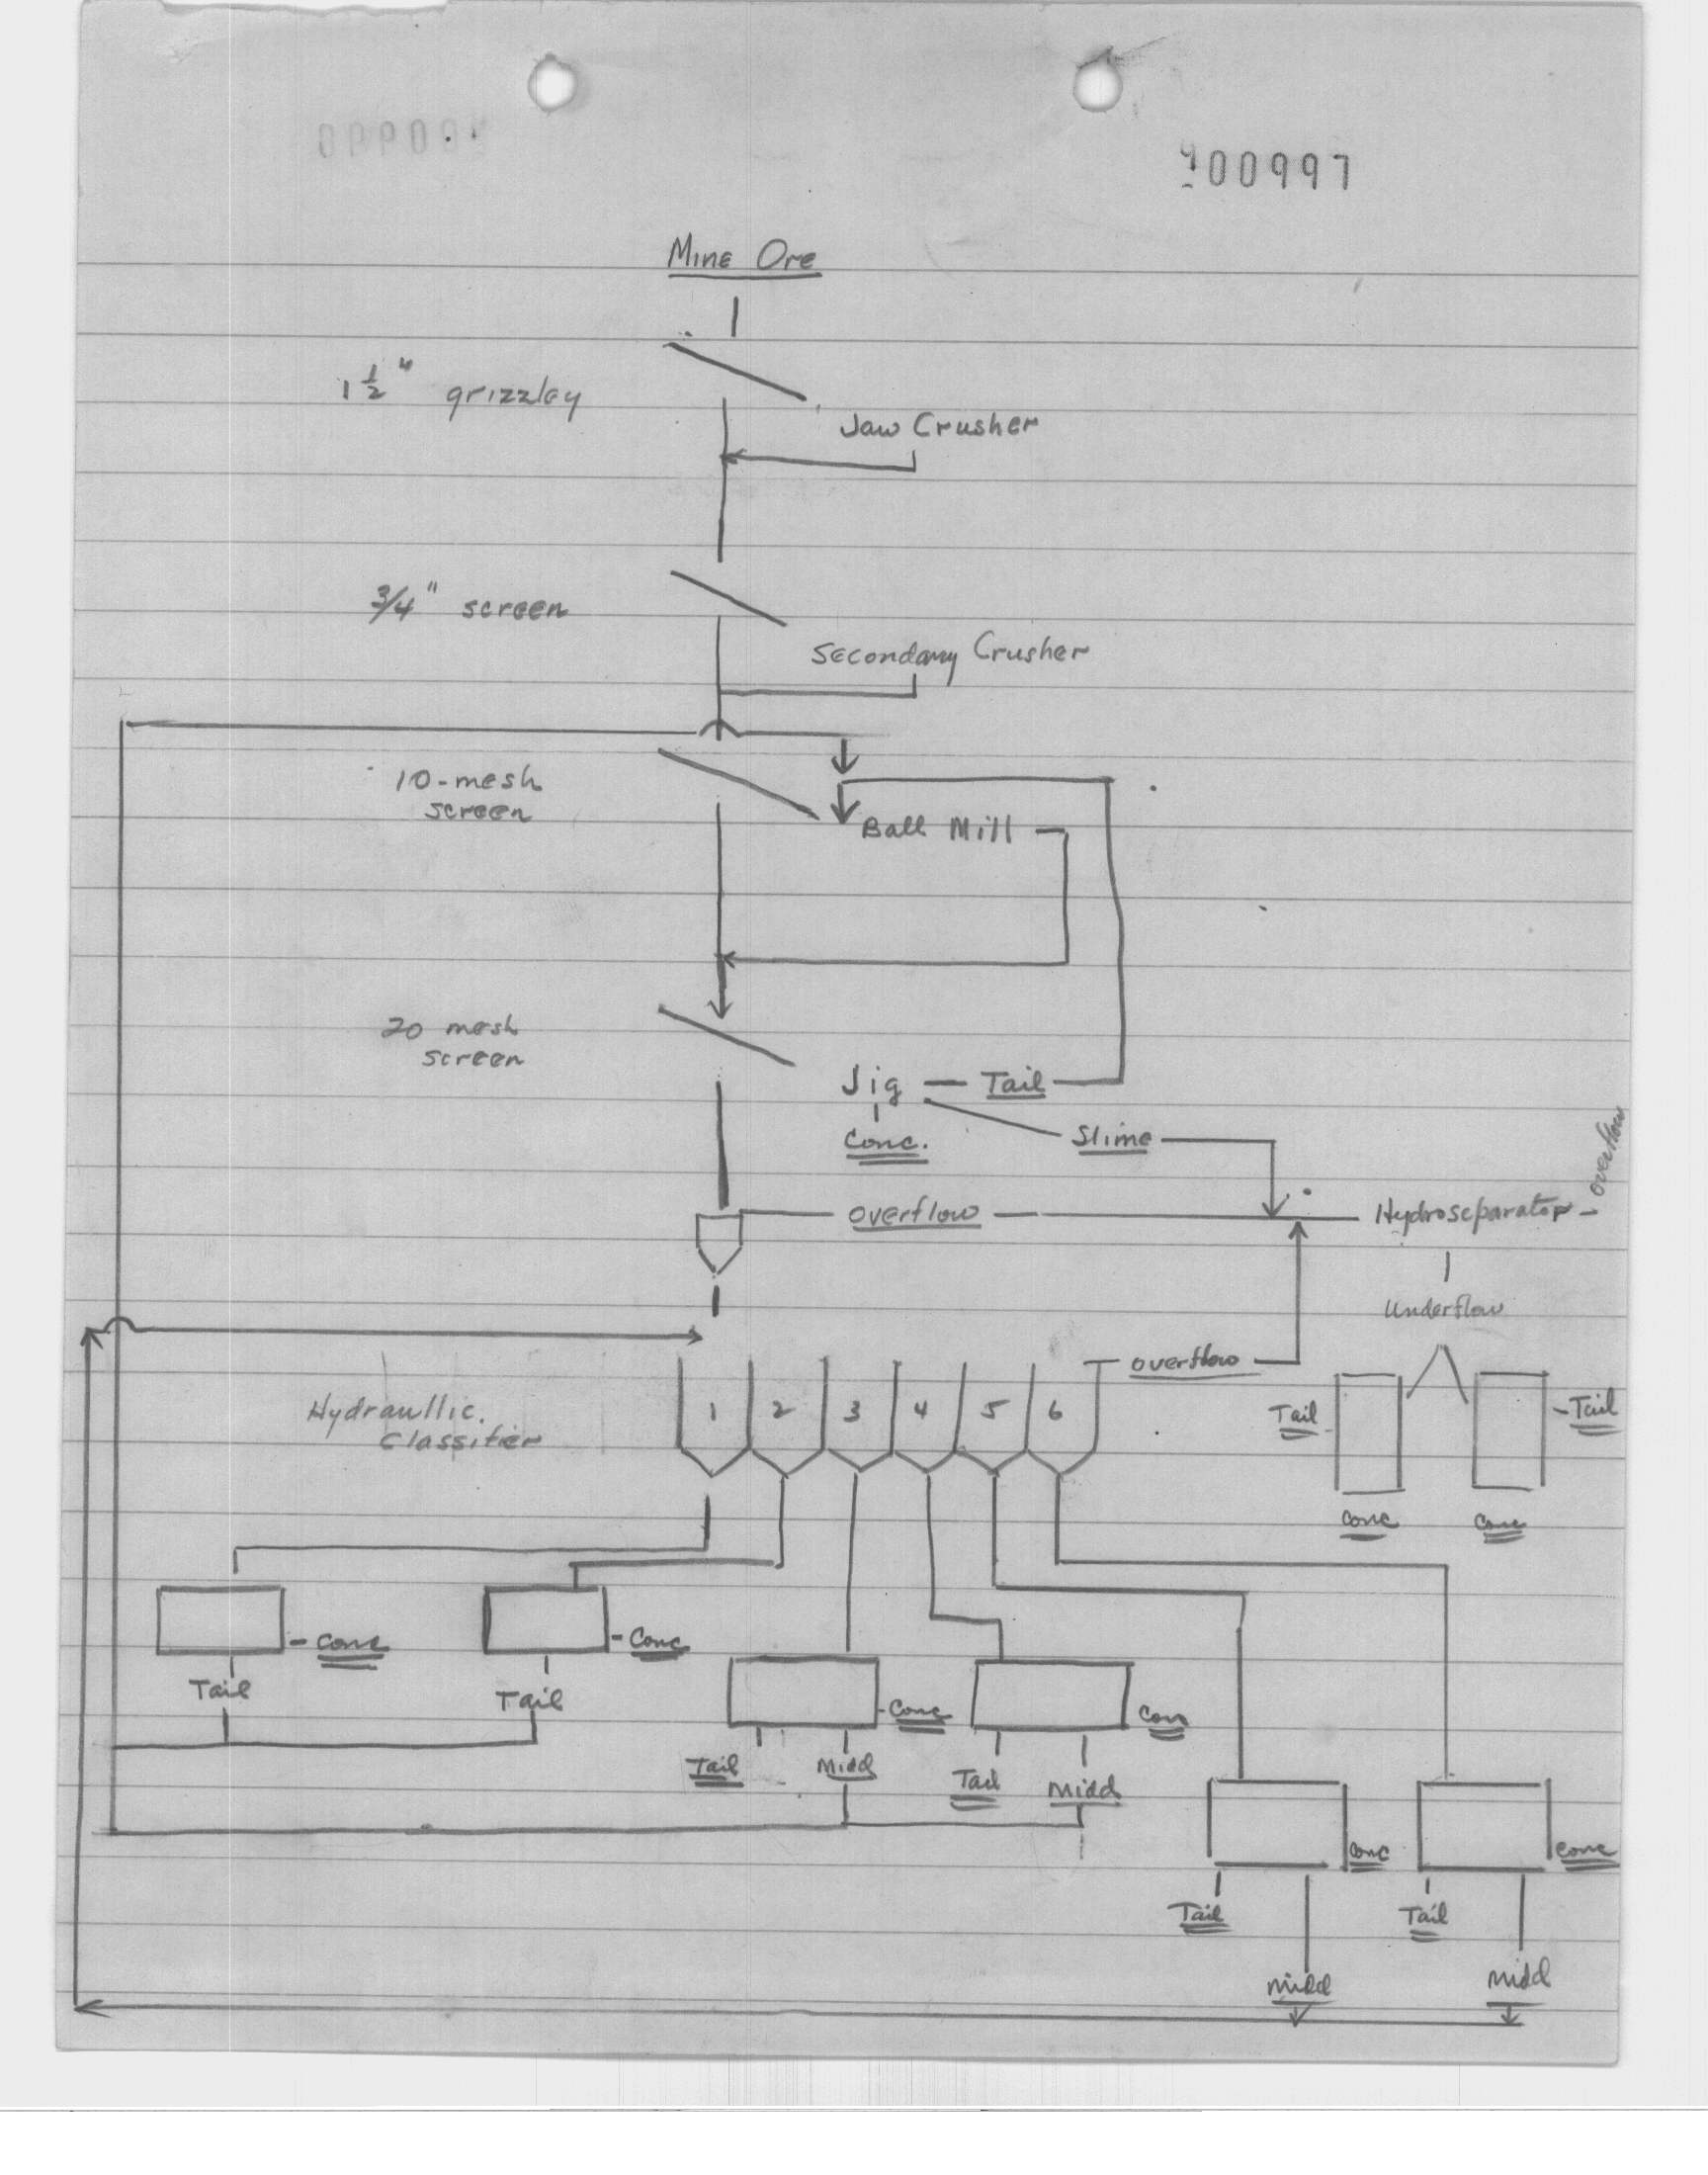 00997
Mine Ore
1 1/2" grizzley
Jaw Crusher
3/4" screen
Secondary Crusher
10-mesh
screen
Ball Mill
20 mesh
screen
Jig — Tail
Conc.
Slime
overflow
overflow
Hydroseparator -
Underflow
overflow
Hydraullic.
Classifier
1 2 3 4 5 6
Tail
Tail
Conc
Conc
Conc
Conc
Tail
Tail
Conc
Conc
Tail
Midd
Tail
Midd
Conc
Conc
Tail
Tail
Midd
Midd